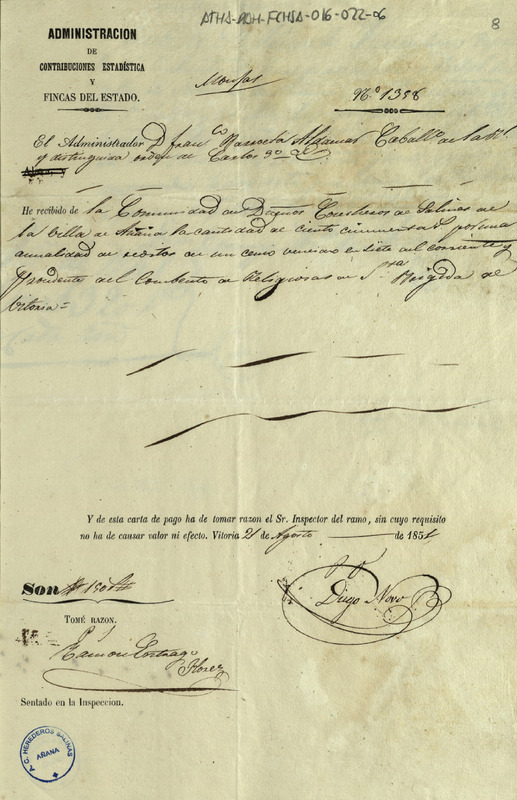 ATHA-DAH-FCHSA-016-022-06
8
ADMINISTRACION
DE
CONTRIBUCIONES ESTADÍSTICA
Y
FINCAS DEL ESTADO.
N.º 1358
El Administrador D. Fran.co Caball.o de la R.l
y distinguida orden de Carlos 3.º
He recibido de la Comunidad de Dueños Cosecheros de Salinas de
la Villa de Añana la cantidad de ciento cincuenta por una
anualidad de reditos de un censo vencido en siete del corriente y
Procedente del Combento de Religiosas de S.ta Brigida de
Vitoria=
Y de esta carta de pago ha de tomar razon el Sr. Inspector del ramo, sin cuyo requisito
no ha de causar valor ni efecto. Vitoria 21 de Agosto de 1851
Son 150
Diego Novo
TOMÉ RAZON.
P. I.
Ramon
Florez
Sentado en la Inspeccion.
C. HEREDEROS SALINAS
AÑANA